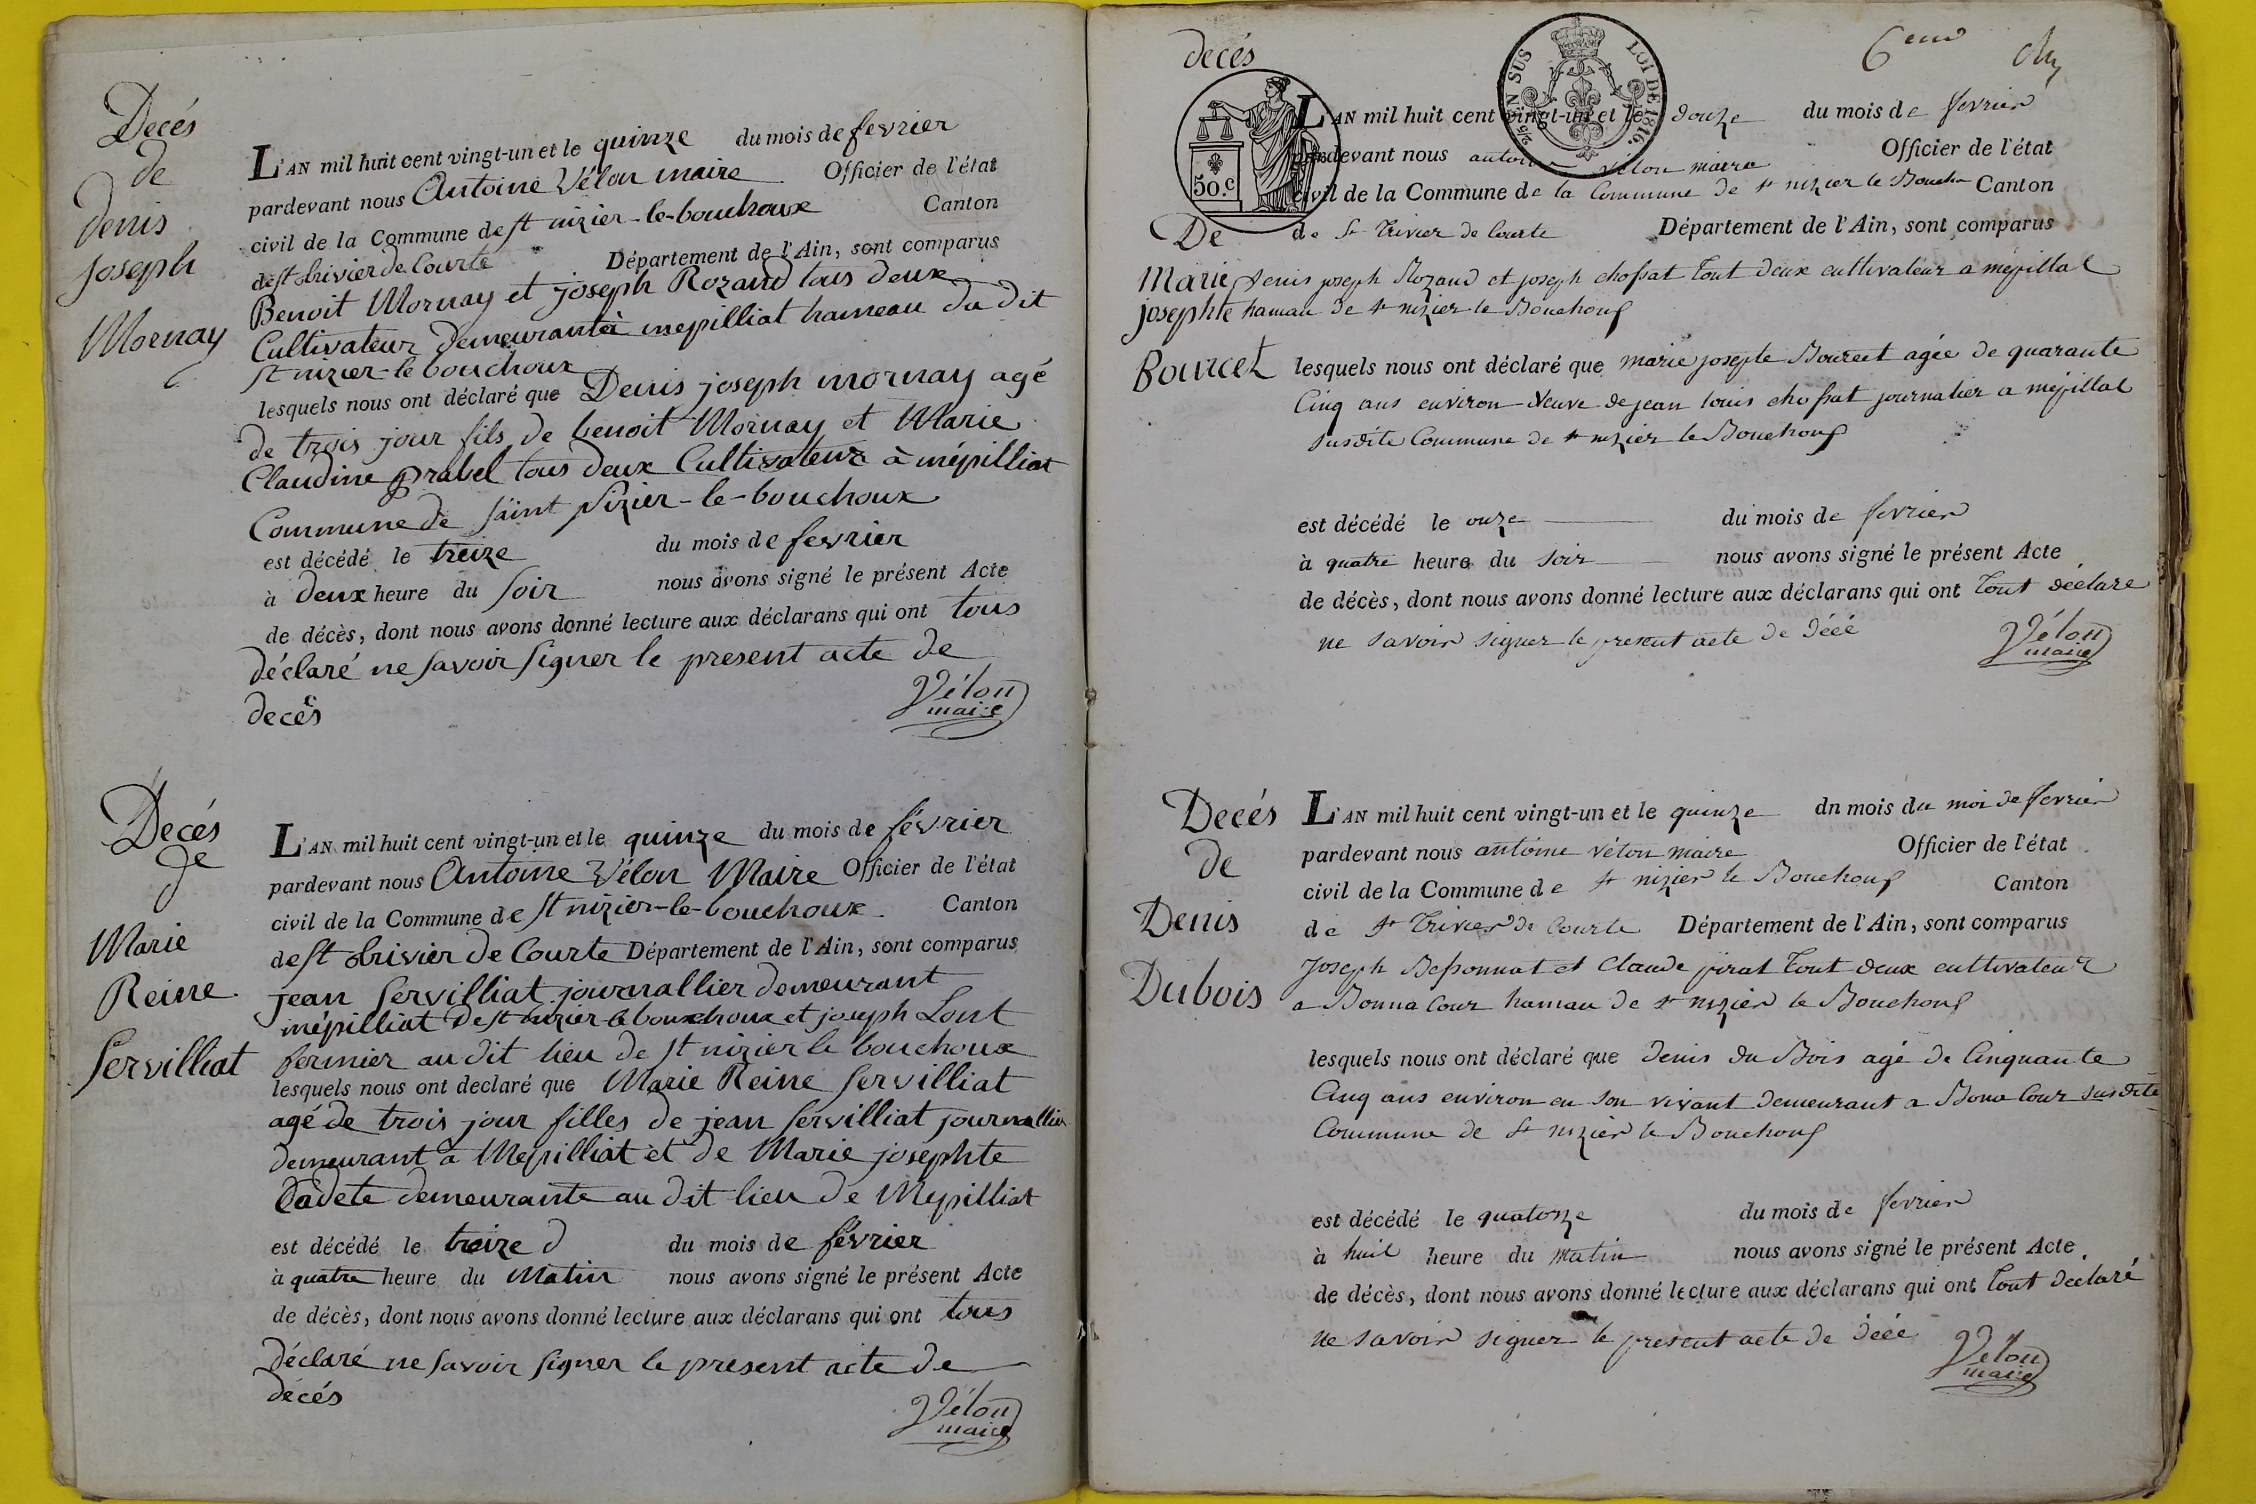 Decés
de
denis
joseph
Mornay
L'AN mil huit cent vingt-un et le quinze du mois de fevrier
pardevant nous Antoine Vélon maire Officier de l'état
civil de la Commune de st nizier-le-bouchoux Canton
de st trivier de Courte Département de l'Ain, sont comparus
Benoit Mornay et joseph Rozand tous deux
Cultivateur demeurant à mepilliat hameau du dit
st nizier-le bouchoux
lesquels nous ont déclaré que Denis joseph mornay agé
de trois jour fils de benoit Mornay et Marie
Claudine prabel tous deux Cultivateur à mépilliat
Commune de saint Nizier-le-bouchoux
est décédé le treize du mois de fevrier
à deux heure du soir nous avons signé le présent Acte
de décès, dont nous avons donné lecture aux déclarans qui ont tous
déclaré ne savoir signer le present acte de
decés
Vélon
maire
Decés
de
Marie
Reine
Servilliat
L'AN mil huit cent vingt-un et le quinze du mois de février
pardevant nous Antoine Vélon Maire Officier de l'état
civil de la Commune de st nizier-le-bouchoux Canton
de st trivier de Courte Département de l'Ain, sont comparus
jean Servilliat journallier demeurant
mépilliat de st nizier le bouchoux et joseph Lont
fermier au dit lieu de st nizier le bouchoux
lesquels nous ont declaré que Marie Reine Servilliat
agé de trois jour filles de jean Servilliat journallier
demeurant à Mepilliat et de Marie josephte
Cadete demeurante au dit lieu de Mepilliat
est décédé le treize du mois de février
à quatre heure du Matin nous avons signé le présent Acte
de décès, dont nous avons donné lecture aux déclarans qui ont tous
déclaré ne savoir signer le present acte de
décés
Vélon
maire
decés
6eme
EN SUS LOI DE 1816.
50.c
De
Marie
josephte
Bourcet
L'AN mil huit cent vingt-un et le douze du mois de fevrier
pardevant nous antoine vélon maire Officier de l'état
civil de la Commune de la Commune de st nizier le Boucho Canton
de St Trivier de Courte Département de l'Ain, sont comparus
denis joseph Rozand et joseph chossat tout deux cultivateur a mépillat
hamau de st nizier le Bouchoux
lesquels nous ont déclaré que marie josepte Bourcet agée de quarante
Cinq ans environ veuve de jean louis chossat journalier a mépillat
susdite Commune de st nizier le Bouchoux
est décédé le onze du mois de fevrier
à quatre heure du soir nous avons signé le présent Acte
de décès, dont nous avons donné lecture aux déclarans qui ont tout déclare
ne savoir signer le present acte de déeé
Vélon
maire
Decés
de
Denis
Dubois
L'AN mil huit cent vingt-un et le quinze du mois du moi de fevrier
pardevant nous antoine vélon maire Officier de l'état
civil de la Commune de st nizier le Bouchoux Canton
de St Trivier de Courte Département de l'Ain, sont comparus
Joseph Bessonnat et Claude pirat tout deux cultivateur
a Bonna Cour hamau de st nizier le Bouchoux
lesquels nous ont déclaré que denis du Bois agé de Cinquante
Cinq ans environ en son vivant demeurant a Bona Cour susdite
Commune de St nizier le Bouchoux
est décédé le quatorze du mois de fevrier
à huit heure du matin nous avons signé le présent Acte
de décès, dont nous avons donné lecture aux déclarans qui ont tout déclaré
ne savoir signer le present acte de déeé
Vélon
maire